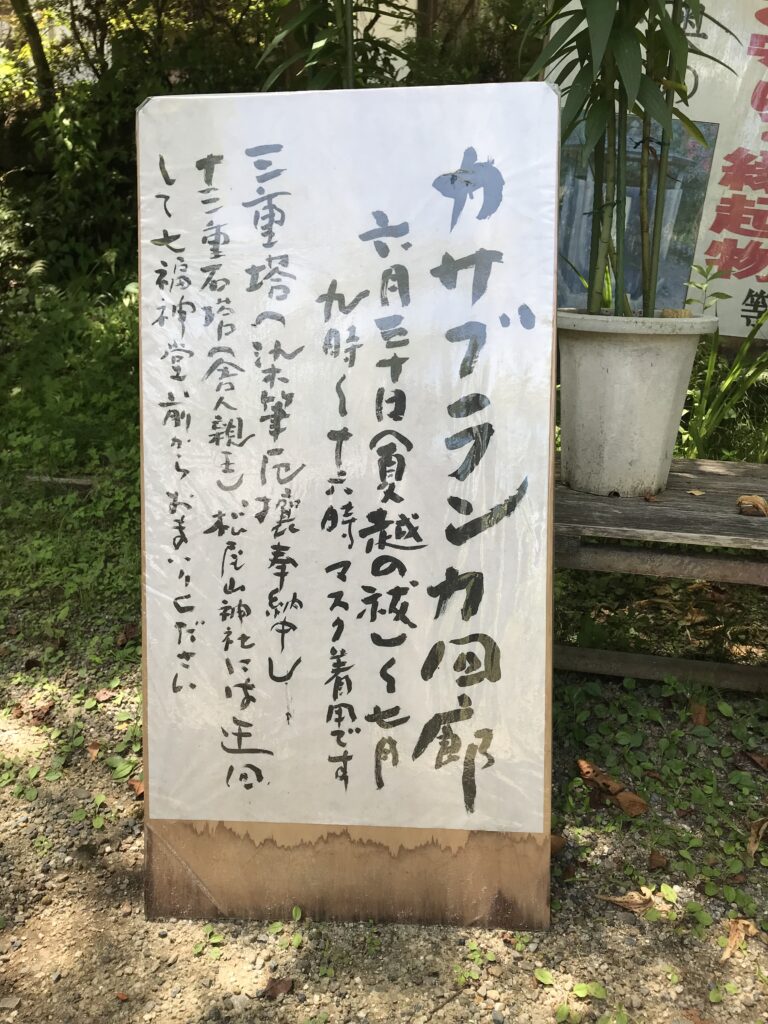 カサブランカ回廊
六月三十日（夏越の祓）〜七月
九時〜十六時 マスク着用です
三重塔へ染筆厄攘奉納申し
十三重石塔（舎人親王）松尾山神社には迂回
して七福神堂前からおまいりください
縁起物